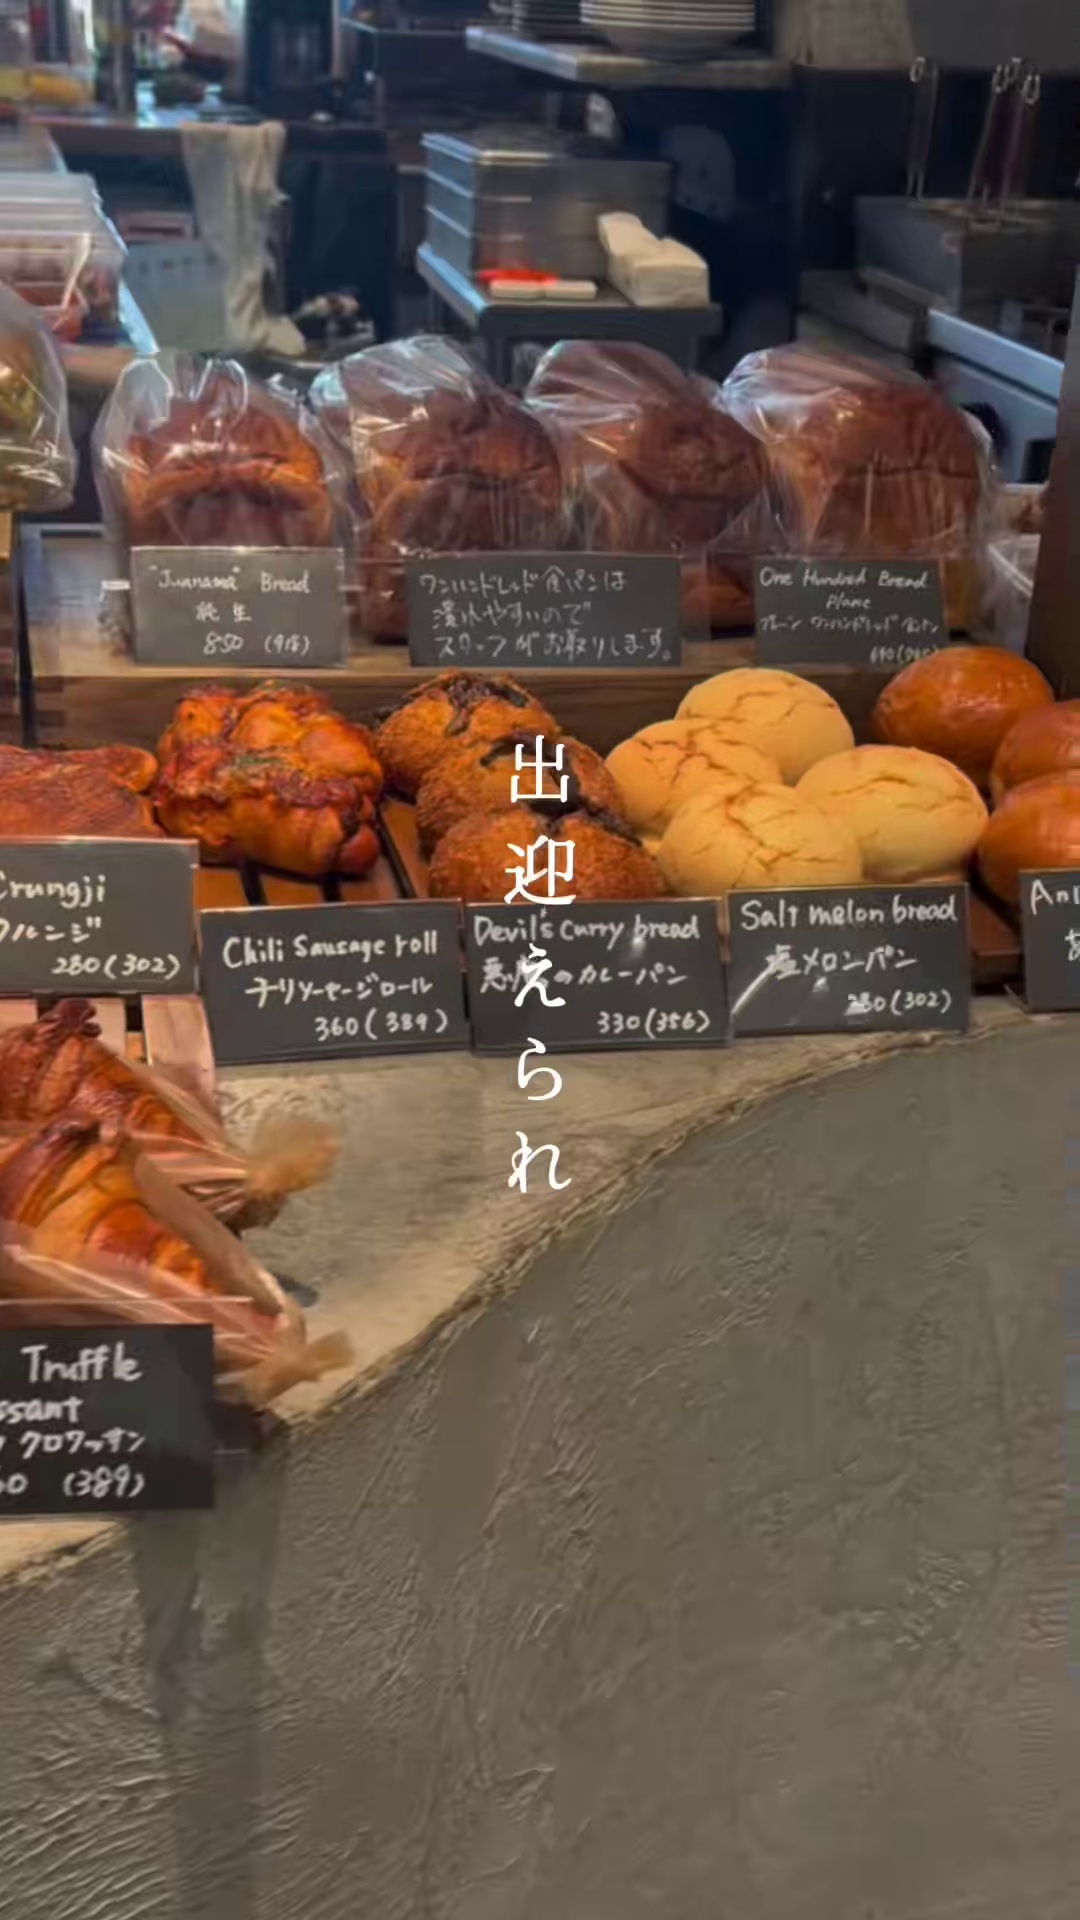 "Junnama" Bread
純生
850 (918)
ワンハンドレッド食パンは
潰れやすいので
スタッフがお取りします。
One Hundred Bread
Plane
プレーン ワンハンドレッド
Crungji
クルンジ
280(302)
Chili Sausage roll
チリソーセージロール
360(389)
Devil's curry bread
悪魔のカレーパン
330(356)
Salt melon bread
塩メロンパン
280(302)
出迎えられ
Truffle
ssant
クロワッサン
(389)